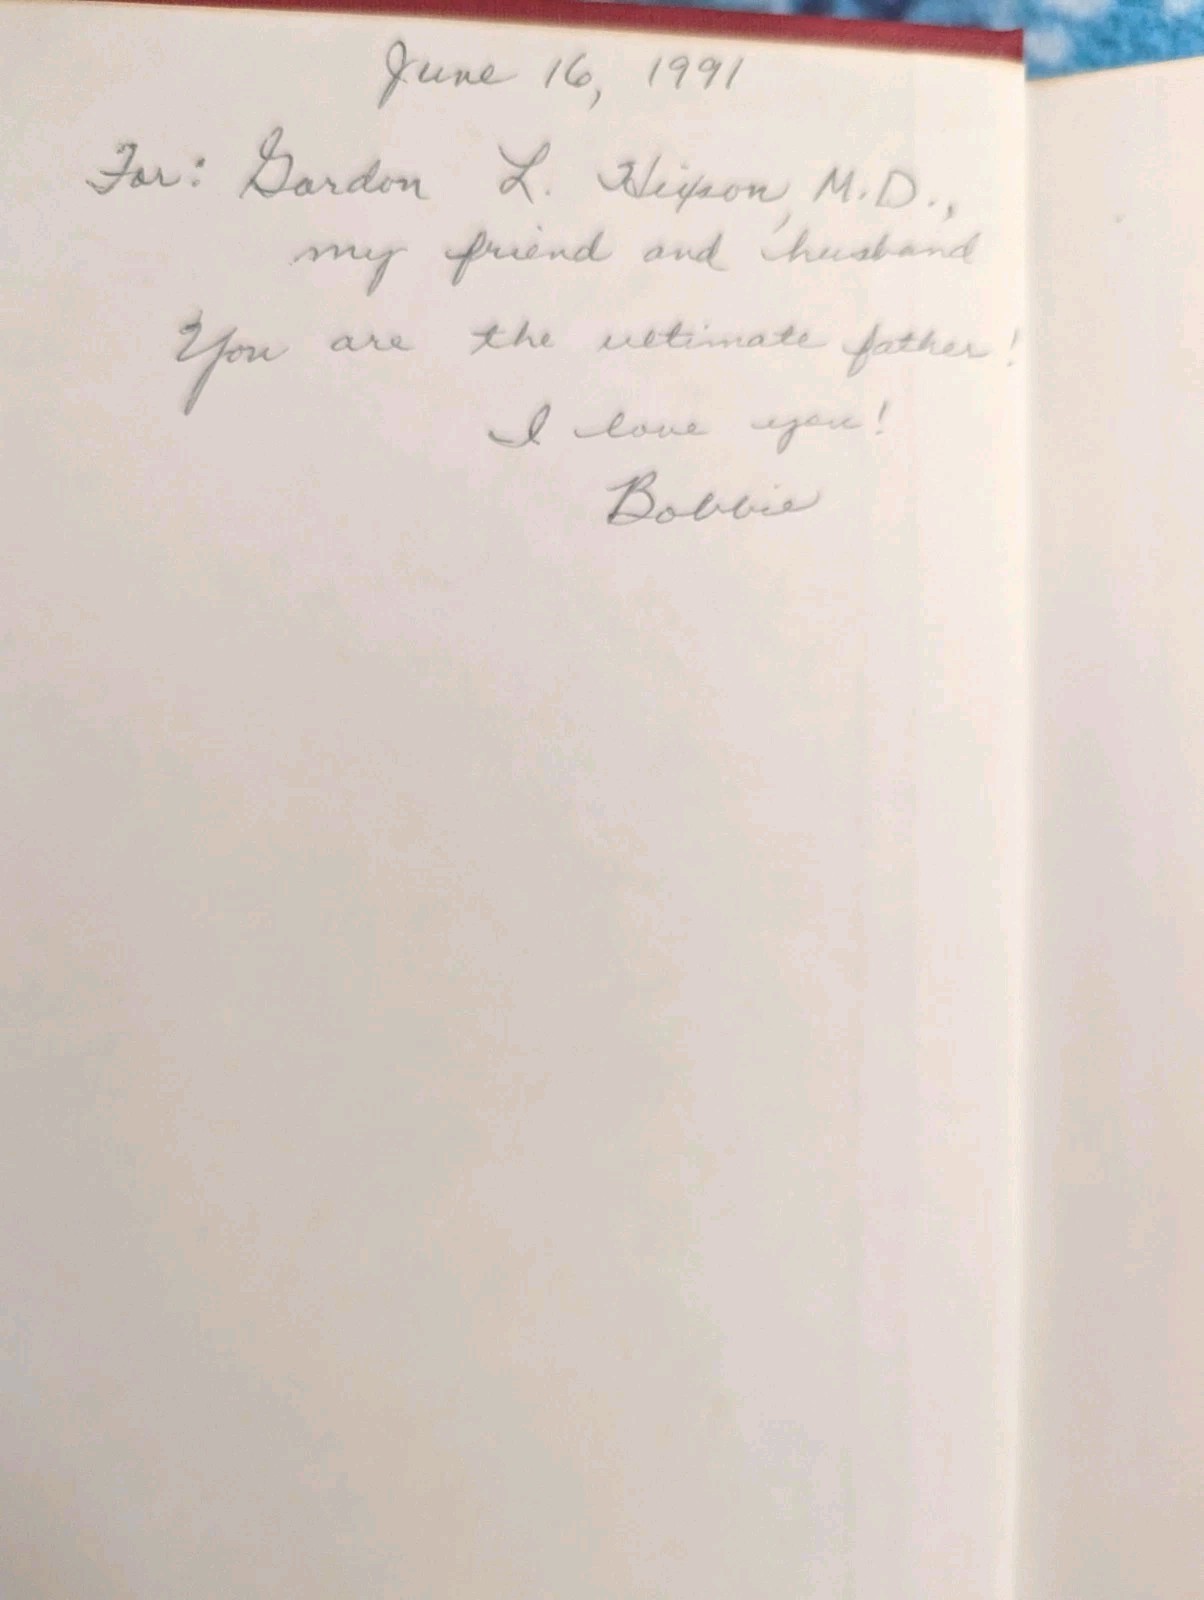 June 16, 1991
For: Gordon L. Hixson, M.D.,
my friend and husband
You are the ultimate father!
I love you!
Bobbie